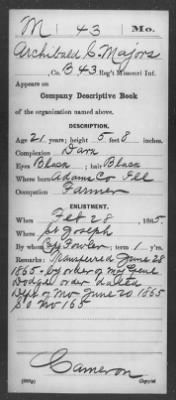 M 43 Mo.
Archibald C. Majors
, Co. B 43 Reg't Missouri Inf.
Appears on
Company Descriptive Book
of the organization named above.
DESCRIPTION.
Age 21 years; height 5 feet 8 inches.
Complexion Dark
Eyes Black ; hair Black
Where born Adams Co Ill
Occupation Farmer
ENLISTMENT.
When Feb 28 , 1865.
Where St Joseph
By whom Fowler ; term 1 y'rs.
Remarks: Transferred June 28
1865 - by order of Maj Genl
Dodge order dated
Dept of Mo June 20 1865
S O No 165
Cameron
Copyist